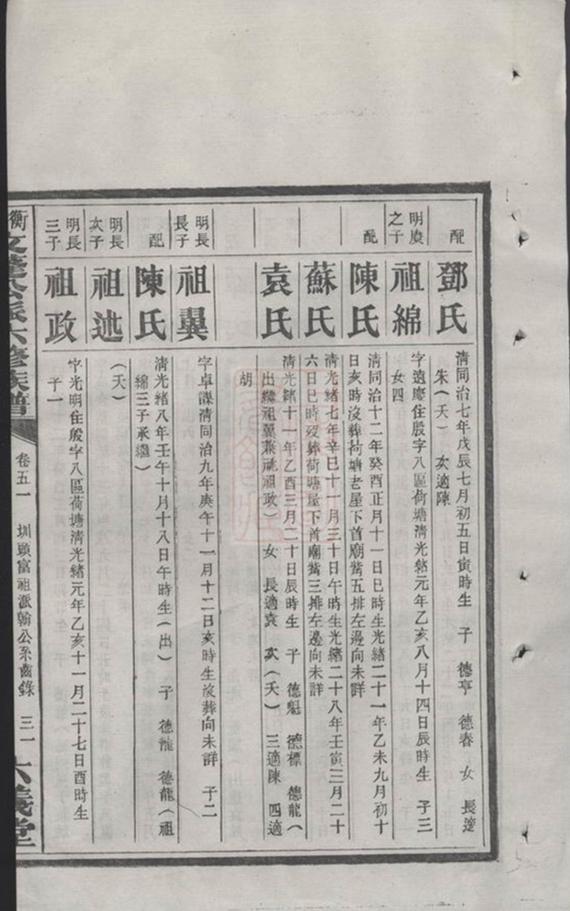 配
鄧氏
清同治七年戊辰七月初五日寅時生 子 德亨 德春 女 長適
朱(夭) 次適陳
明慶
之子
祖綿
字遠慶住殷字八區荷塘清光緒元年乙亥八月十四日辰時生 子三
女四
配
陳氏
清同治十二年癸酉正月十一日巳時生光緒二十一年乙未九月初十
日亥時沒葬荷塘老屋下首廟嘴五排左邊向未詳
蘇氏
清光緒七年辛巳十一月三十日午時生光緒二十八年壬寅三月二十
六日巳時沒葬荷塘屋下首廟嘴三排左邊向未詳
袁氏
清光緒十一年乙酉三月二十日辰時生 子 德魁 德標 德龍(
出繼祖翼兼祧祖政) 女 長適袁 次(夭) 三適陳 四適
胡
明長
長子
祖翼
字卓謀清同治九年庚午十一月十二日亥時生沒葬向未詳 子二
配
陳氏
清光緒八年壬午十月十八日午時生(出) 子 德龍(祖
綿三子承繼)
明長
次子
祖述
(夭)
明長
三子
祖政
字光明住殷字八區荷塘清光緒元年乙亥十一月二十七日酉時生
子一
公派六修族譜
卷五一
圳頭富祖派翰公系齒錄
三一
六義堂